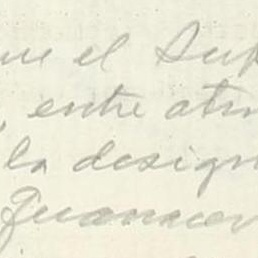 que el Sup
, entre atr
la design
Guanacev